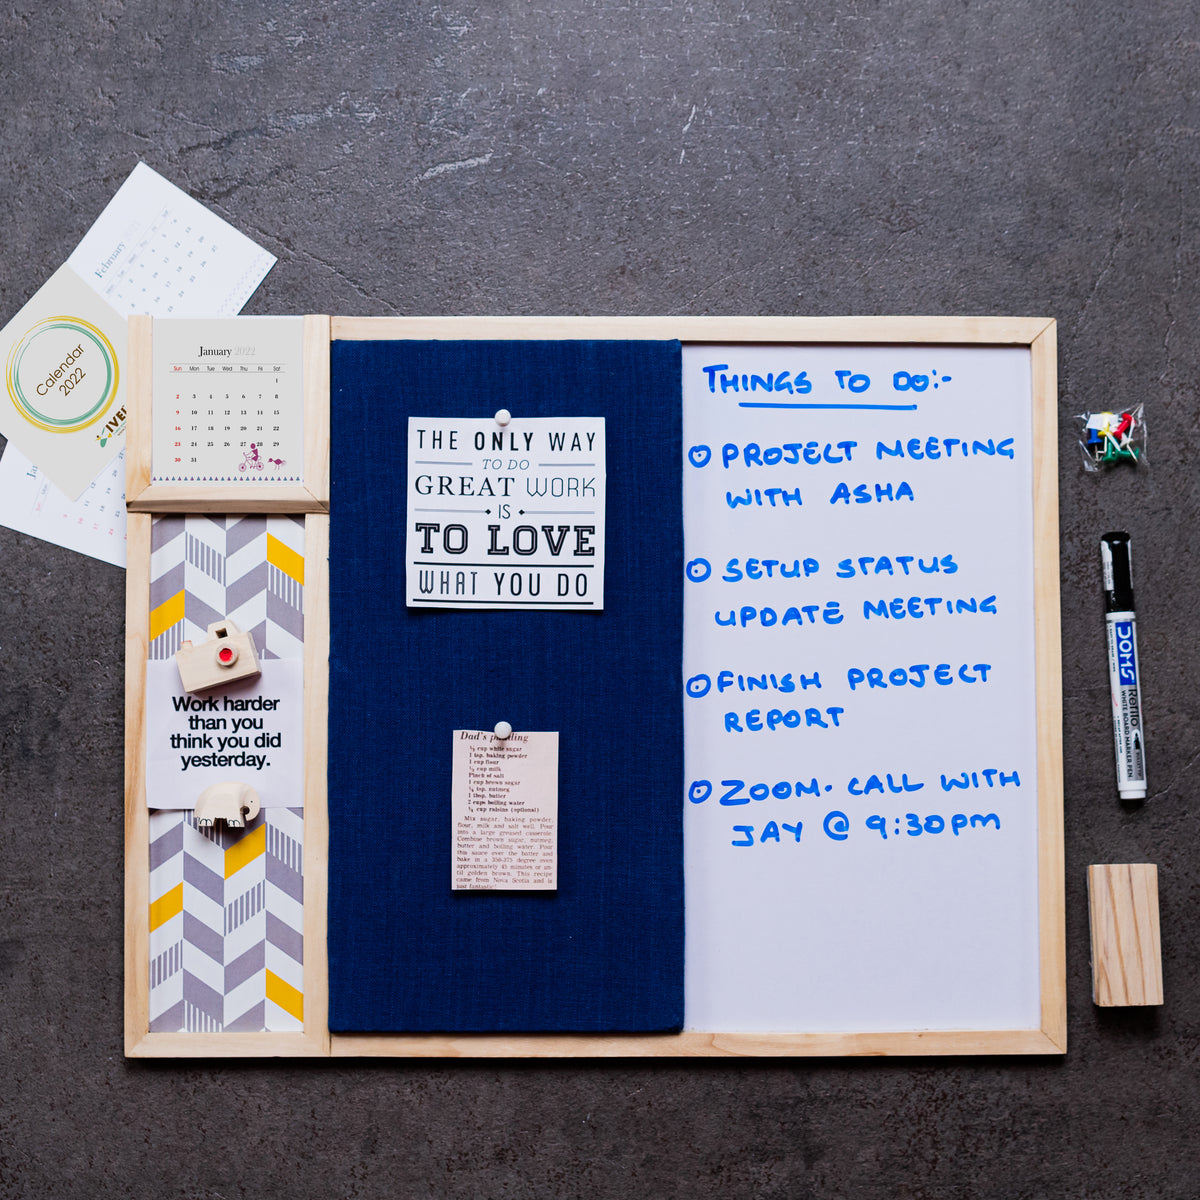 February
Calendar
2022
January 2022
Sun Mon Tues Wed Thu Fri Sat
1
2 3 4 5 6 7 8
9 10 11 12 13 14 15
16 17 18 19 20 21 22
23 24 25 26 27 28 29
30 31
Work harder
than you
think you did
yesterday.
THE ONLY WAY
TO DO
GREAT WORK
IS
TO LOVE
WHAT YOU DO
Dad's pudding
1 tsp. baking powder
1 cup flour
½ cup milk
Pinch of salt
1 cup brown sugar
¼ tsp. nutmeg
1 tbsp. butter
2 cups boiling water
¾ cup raisins (optional)
Mix sugar, baking powder,
flour, milk and salt well. Pour
into a large greased casserole.
Combine brown sugar, nutmeg,
butter and boiling water. Pour
this sauce over the batter and
bake in a 350-375 degree oven
approximately 45 minutes or un-
til golden brown. This recipe
came from Nova Scotia and is
just fantastic!
THINGS TO DO:-
PROJECT MEETING
WITH ASHA
SETUP STATUS
UPDATE MEETING
FINISH PROJECT
REPORT
ZOOM. CALL WITH
JAY @ 9:30PM
DOMS
Refilo
WHITE BOARD MARKER PEN